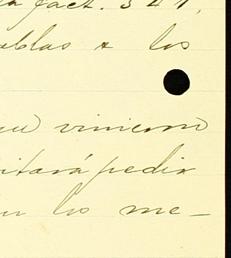 fact. 541,
ablas a los
vinieron
itará pedir
en los me-